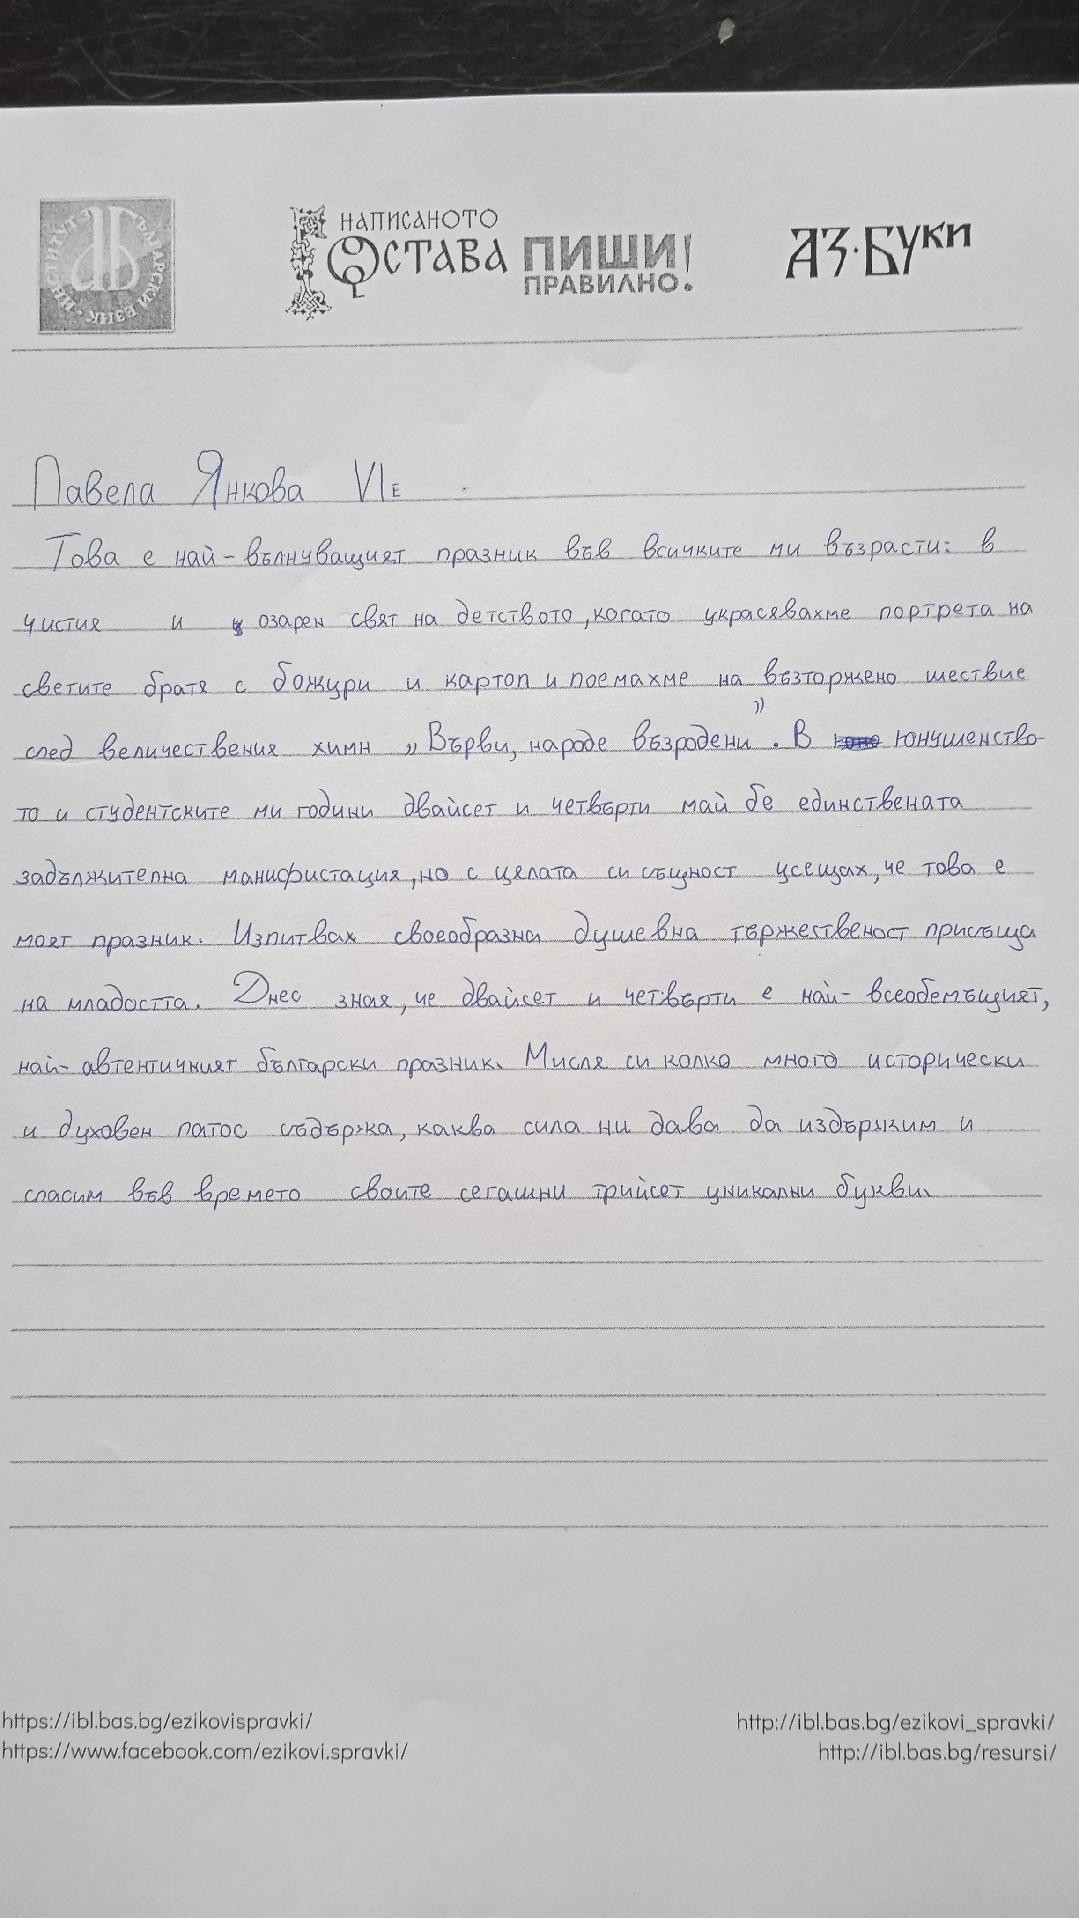 ИНСТИТУТ ЗА БЪЛГАРСКИ ЕЗИК
НАПИСАНОТО
ОСТАВА
ПИШИ!
ПРАВИЛНО.
АЗ·БУКИ
Павела Янкова VIе
Това е най-вълнуващият празник във всичките ми възрасти: в
чистия и озарен свят на детството, когато украсявахме портрета на
светите братя с божури и картоп и поемахме на възторжено шествие
след величествения химн „Върви, народе възродени". В юнушенство-
то и студентските ми години двайсет и четвърти май бе единствената
задължителна манифистация, но с целата си същност усещах, че това е
моят празник. Изпитвах своеобразна душевна тържественост присъща
на младостта. Днес зная, че двайсет и четвърти е най-всеобемъщият,
най-автентичният български празник. Мисля си колко много исторически
и духовен патос съдържа, каква сила ни дава да издържим и
спасим във времето своите сегашни трийсет уникални букви.
https://ibl.bas.bg/ezikovispravki/
https://www.facebook.com/ezikovi.spravki/
http://ibl.bas.bg/ezikovi_spravki/
http://ibl.bas.bg/resursi/